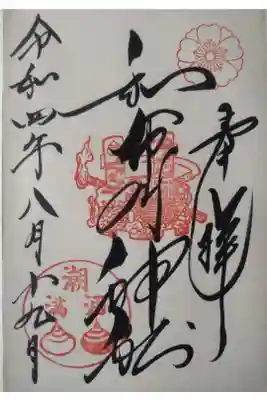 奉拝
和布刈神社
令和四年八月十九日
潮
満